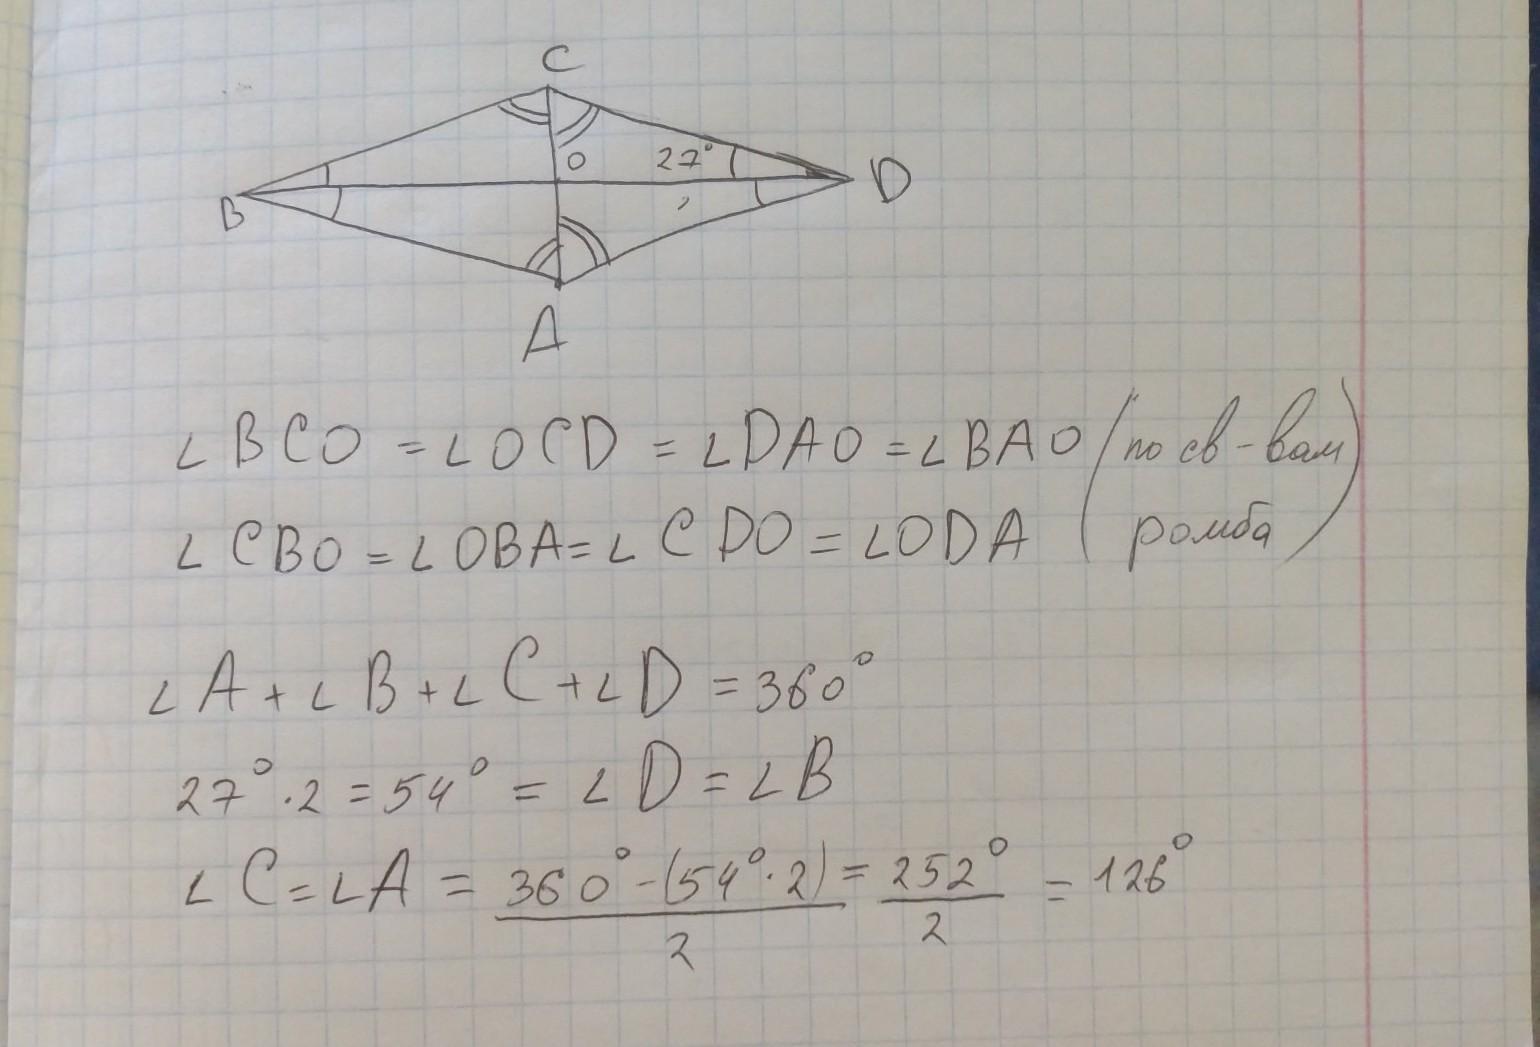 C
O 27°
B D
A
∠BCO = ∠OCD = ∠DAO = ∠BAO (по св-вам
∠CBO = ∠OBA = ∠CDO = ∠ODA ромба)
∠A + ∠B + ∠C + ∠D = 360°
27° · 2 = 54° = ∠D = ∠B
∠C = ∠A = 360° - (54° · 2) / 2 = 252° / 2 = 126°